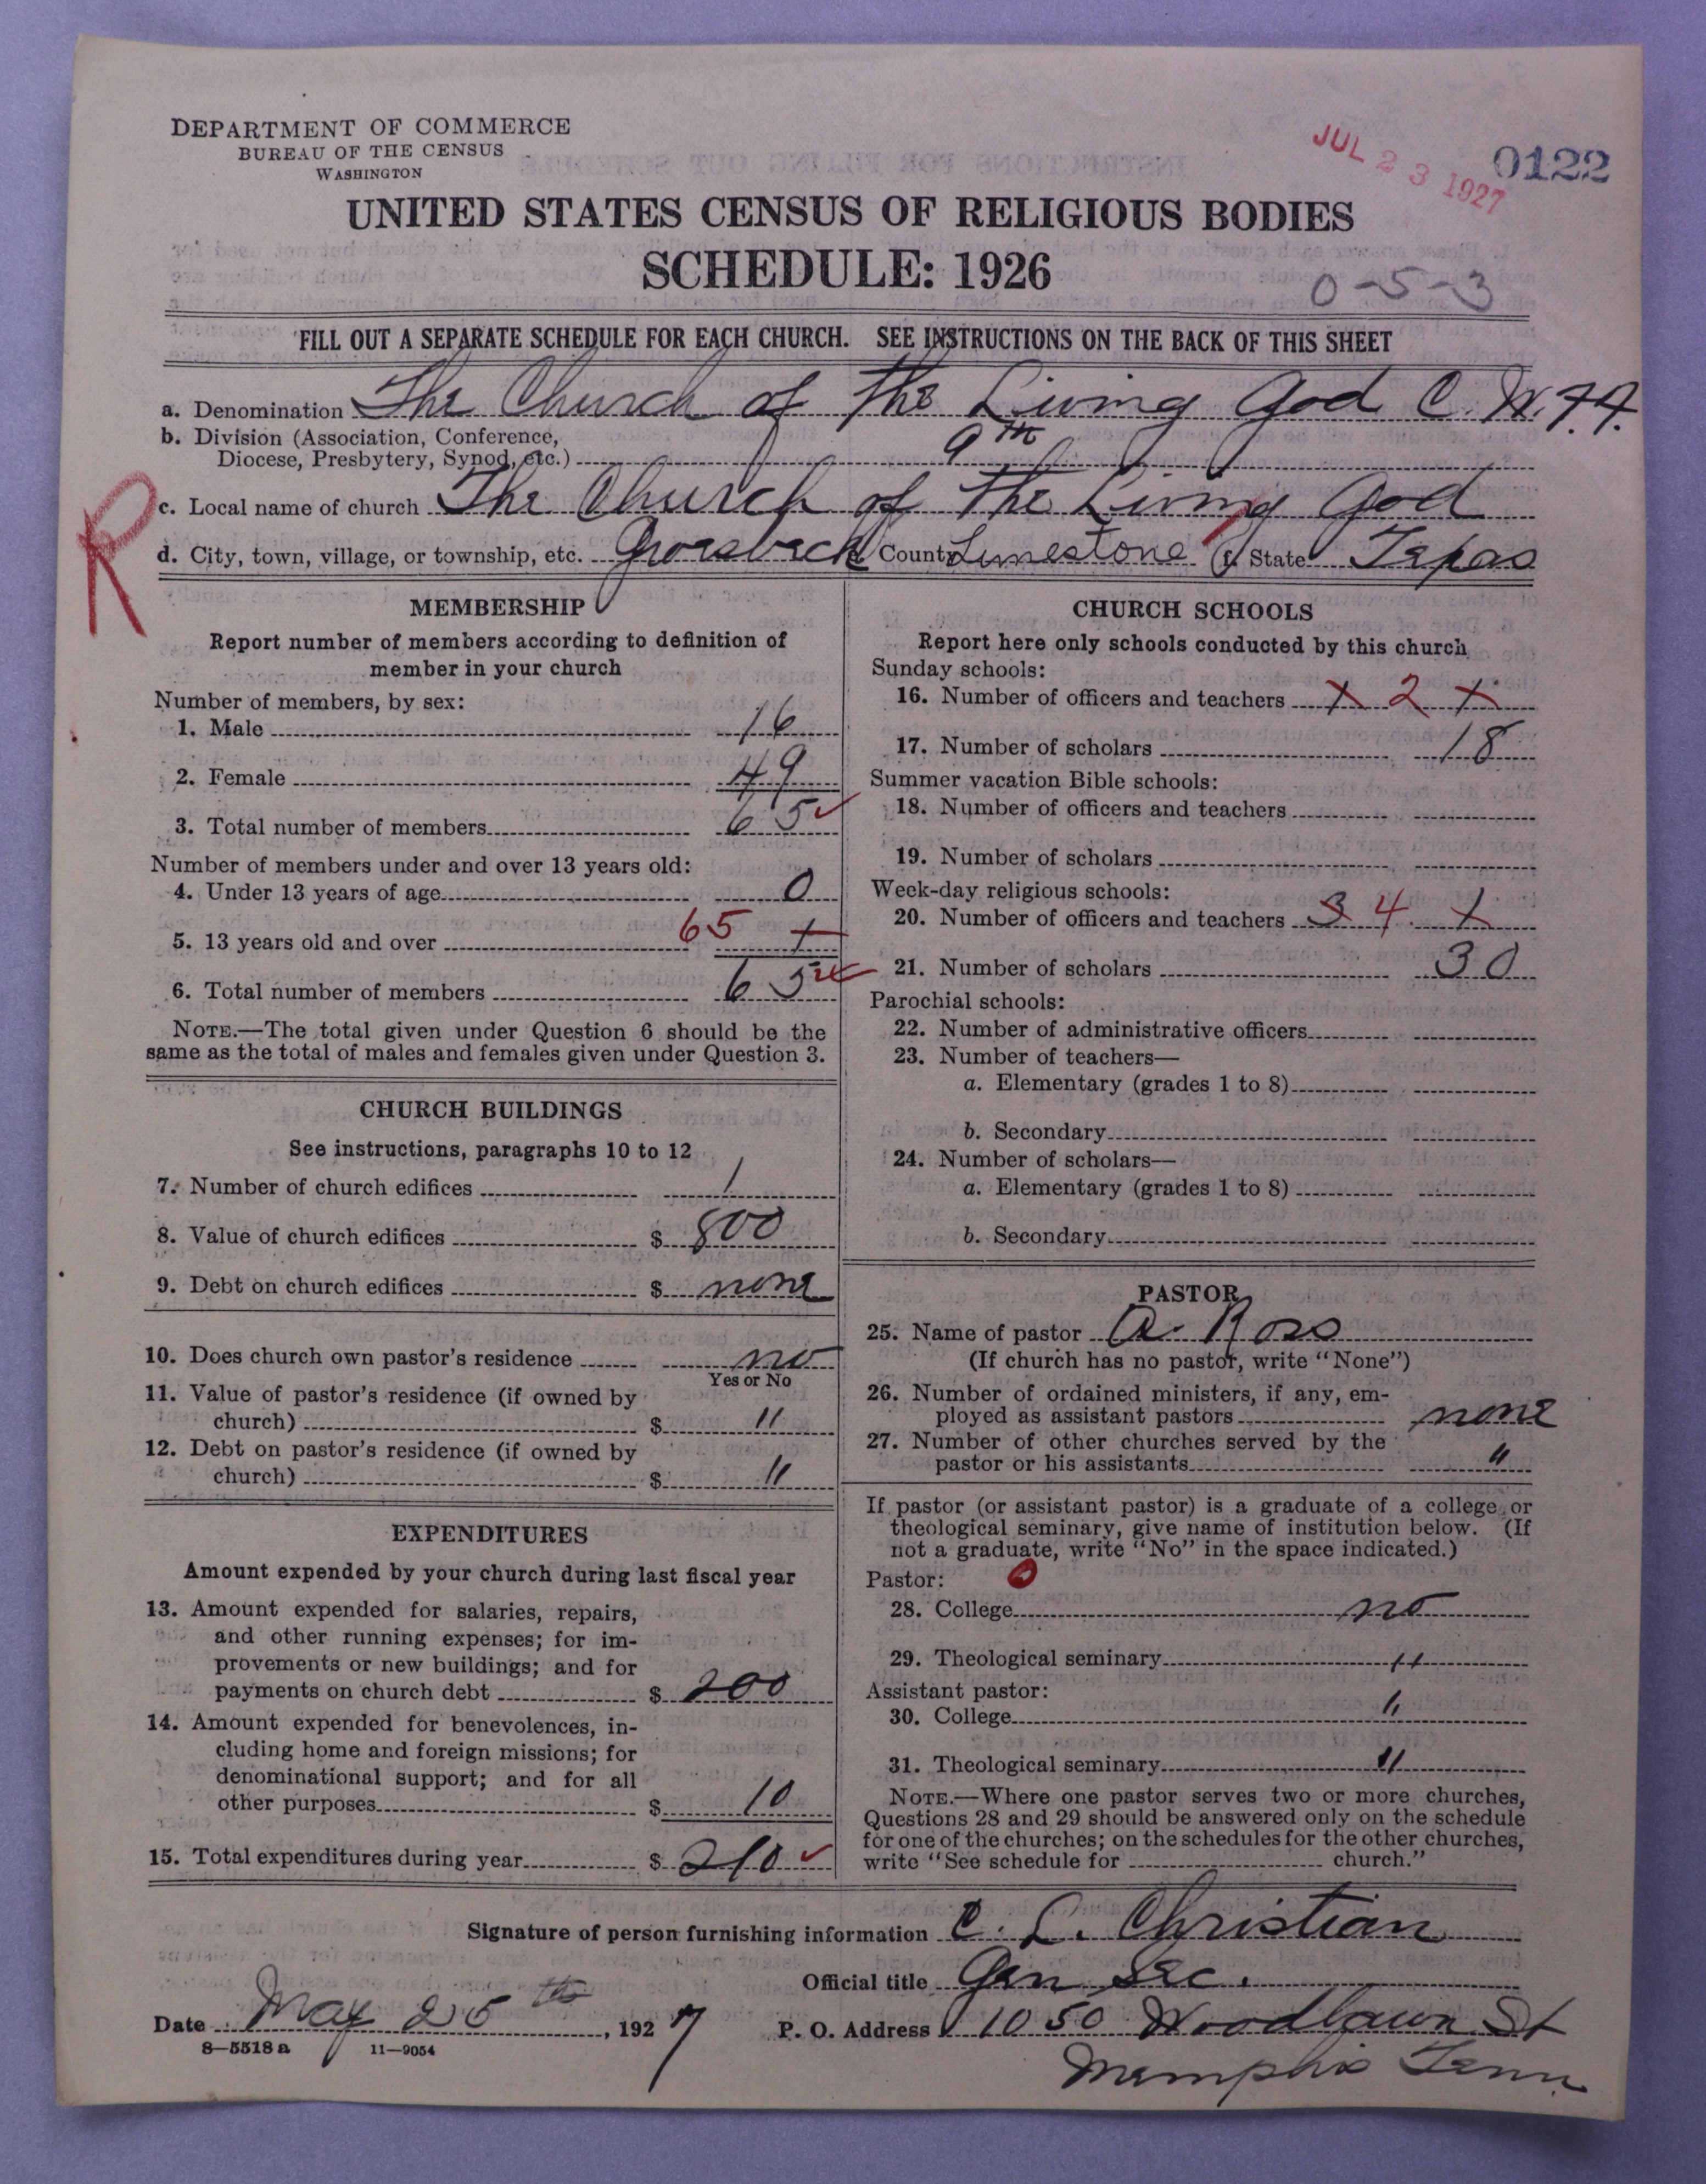 DEPARTMENT OF COMMERCE
BUREAU OF THE CENSUS
WASHINGTON
JUL 23 1927
0122
UNITED STATES CENSUS OF RELIGIOUS BODIES
SCHEDULE: 1926
0-5-3
FILL OUT A SEPARATE SCHEDULE FOR EACH CHURCH. SEE INSTRUCTIONS ON THE BACK OF THIS SHEET
a. Denomination The Church of The Living God C. W. F. F.
b. Division (Association, Conference,
Diocese, Presbytery, Synod, etc.) 9th
R
c. Local name of church The Church of The Living God
d. City, town, village, or township, etc. Groesbeck e. County Limestone f. State Texas
MEMBERSHIP
Report number of members according to definition of
member in your church
Number of members, by sex:
1. Male 16
2. Female 49
3. Total number of members 65
Number of members under and over 13 years old:
4. Under 13 years of age 0
5. 13 years old and over 65
6. Total number of members 65
NOTE.—The total given under Question 6 should be the
same as the total of males and females given under Question 3.
CHURCH BUILDINGS
See instructions, paragraphs 10 to 12
7. Number of church edifices 1
8. Value of church edifices $ 800
9. Debt on church edifices $ none
10. Does church own pastor's residence no
Yes or No
11. Value of pastor's residence (if owned by
church) $ "
12. Debt on pastor's residence (if owned by
church) $ "
EXPENDITURES
Amount expended by your church during last fiscal year
13. Amount expended for salaries, repairs,
and other running expenses; for im-
provements or new buildings; and for
payments on church debt $ 200
14. Amount expended for benevolences, in-
cluding home and foreign missions; for
denominational support; and for all
other purposes $ 10
15. Total expenditures during year $ 210
CHURCH SCHOOLS
Report here only schools conducted by this church
Sunday schools:
16. Number of officers and teachers x 2 x
17. Number of scholars 18
Summer vacation Bible schools:
18. Number of officers and teachers
19. Number of scholars
Week-day religious schools:
20. Number of officers and teachers 3 4 x
21. Number of scholars 30
Parochial schools:
22. Number of administrative officers
23. Number of teachers—
a. Elementary (grades 1 to 8)
b. Secondary
24. Number of scholars—
a. Elementary (grades 1 to 8)
b. Secondary
PASTOR
25. Name of pastor A. Ross
(If church has no pastor, write "None")
26. Number of ordained ministers, if any, em-
ployed as assistant pastors none
27. Number of other churches served by the
pastor or his assistants "
If pastor (or assistant pastor) is a graduate of a college or
theological seminary, give name of institution below. (If
not a graduate, write "No" in the space indicated.)
Pastor: 0
28. College no
29. Theological seminary "
Assistant pastor:
30. College "
31. Theological seminary "
NOTE.—Where one pastor serves two or more churches,
Questions 28 and 29 should be answered only on the schedule
for one of the churches; on the schedules for the other churches,
write "See schedule for church."
Signature of person furnishing information C. L. Christian
Official title Gen Sec.
Date May 25th, 1927 P. O. Address 1050 Woodlawn St
8-5518 a 11-9054
Memphis Tenn.